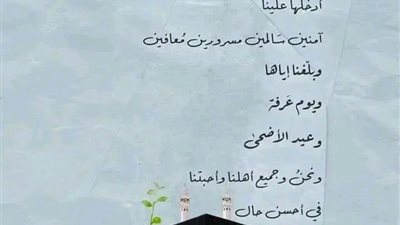 أدخلها علينا
آمنين سَالمين مسرورين مُعافين
وبلّغنا إياها
ويوم عَرفة
وعيد الأضحىٰ
ونحنُ وجميع أهلنا وأحبتنا
في أحسن حال